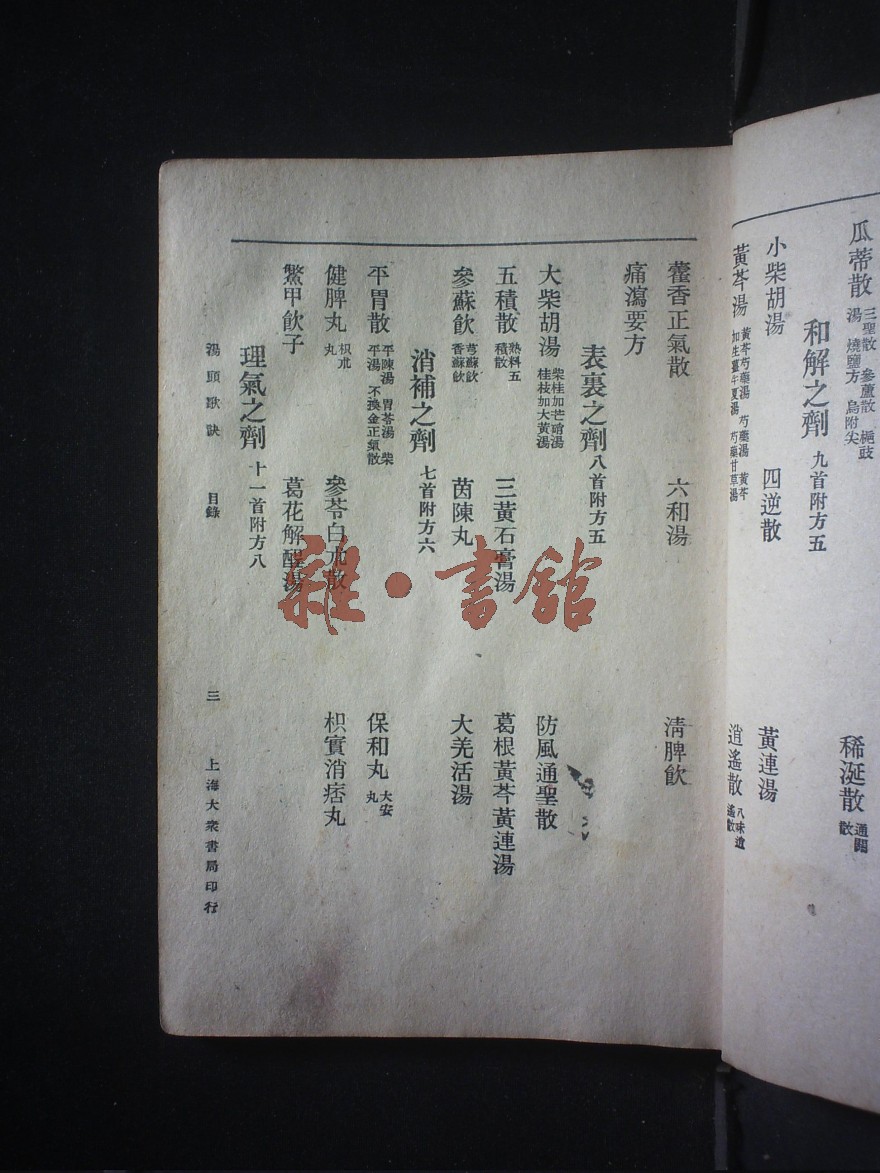 瓜蒂散 三聖散 參蘆散 梔豉湯 燒鹽方 烏附尖 稀涎散 通關散
和解之劑 九首附方五
小柴胡湯 四逆散 黃連湯
黃芩湯 黃芩芍藥湯 芍藥湯 黃芩加生薑半夏湯 芍藥甘草湯 逍遙散 八味逍遙散
藿香正氣散 六和湯 清脾飲
痛瀉要方
表裏之劑 八首附方五
大柴胡湯 柴桂加芒硝湯 桂枝加大黃湯 防風通聖散
五積散 熟料五積散 三黃石膏湯 葛根黃芩黃連湯
參蘇飲 芎蘇飲 香蘇飲 茵陳丸 大羌活湯
消補之劑 七首附方六
平胃散 平陳湯 胃苓湯 柴平湯 不換金正氣散 保和丸 大安丸
健脾丸 枳朮丸 參苓白朮散 枳實消痞丸
鱉甲飲子 葛花解酲湯
理氣之劑 十一首附方八
湯頭歌訣 目錄 三 上海大衆書局印行
雜·書館